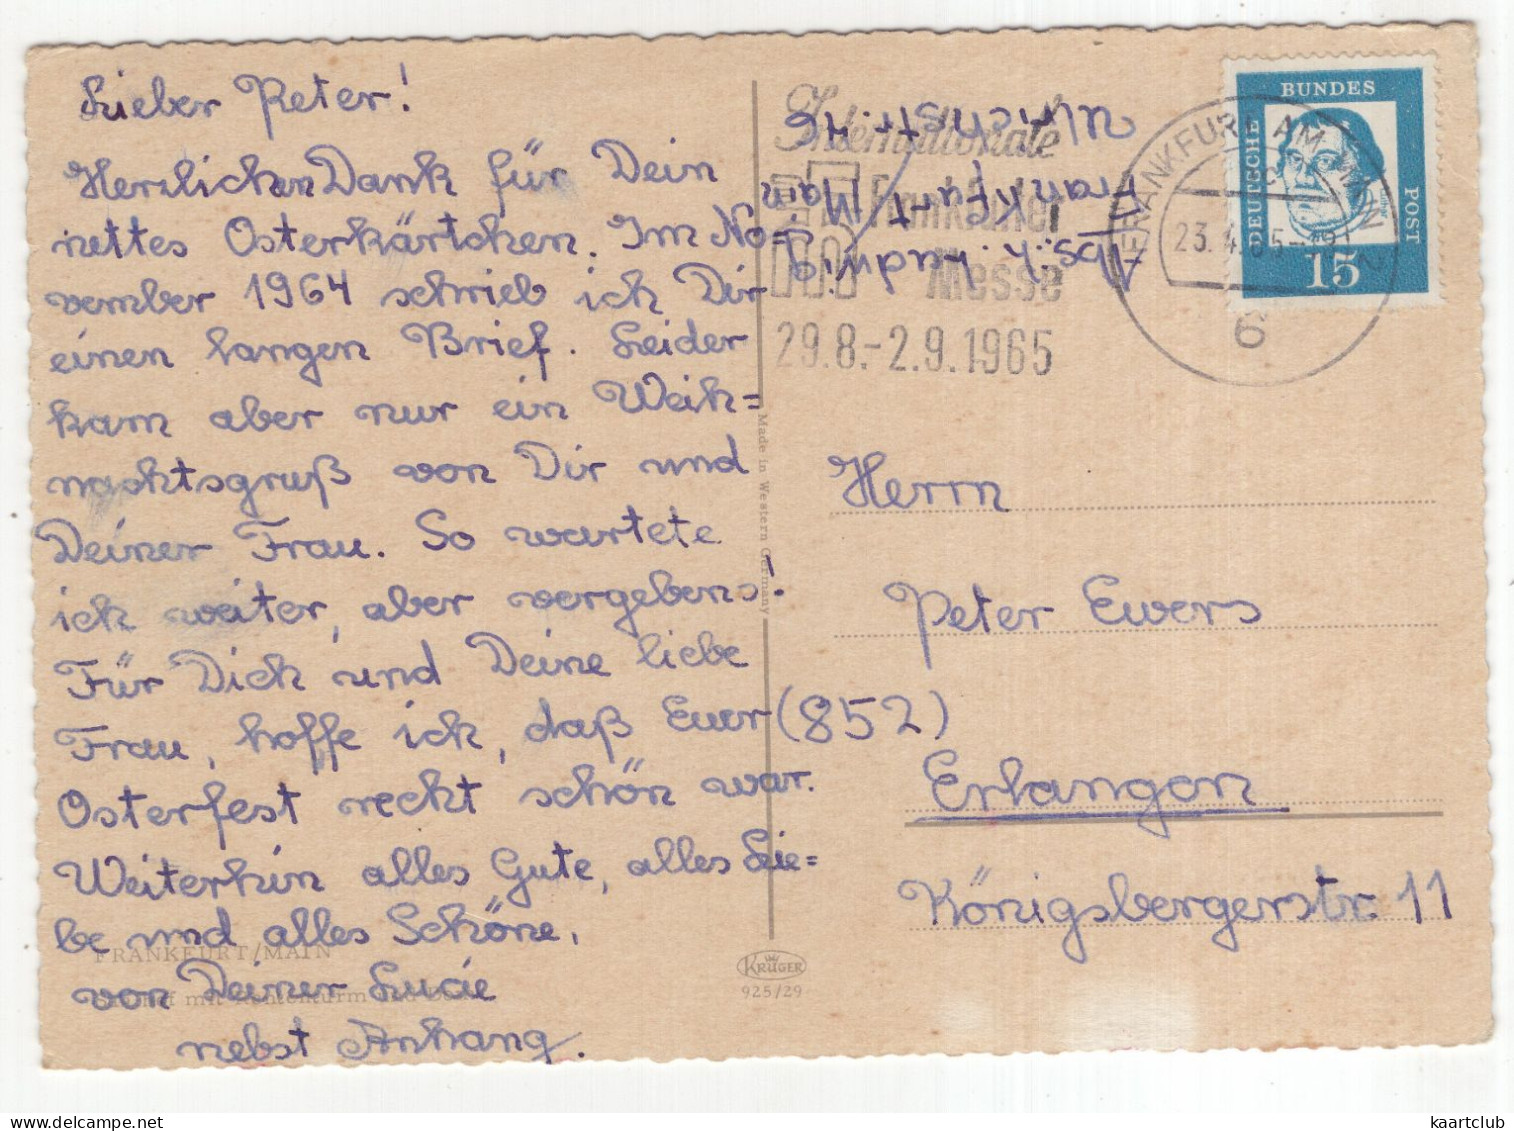 Lieber Peter!
Herzlichen Dank für Dein
nettes Osterkärtchen. Im No=
vember 1964 schrieb ich Dir
einen langen Brief. Leider
kam aber nur ein Weih=
nachtsgruß von Dir und
Deiner Frau. So wartete
ich weiter, aber vergebens!
Für Dich und Deine liebe
Frau, hoffe ich, daß Euer
Osterfest recht schön war.
Weiterhin alles Gute, alles Lie=
be und alles Schöne,
von Deiner Lucie
nebst Anhang.
FRANKFURT/MAIN
mit
Made in Western Germany
KRÜGER
925/29
Abs.: L. Ludwig
Frankfurt/Main
Internationale
Frankfurter
Messe
29.8.-2.9.1965
FRANKFURT AM MAIN 2
c
23.4.65-19
6
BUNDES
DEUTSCHE
POST
15
Herrn
Peter Ewers
(852)
Erlangen
Königsbergerstr. 11
kaartclub